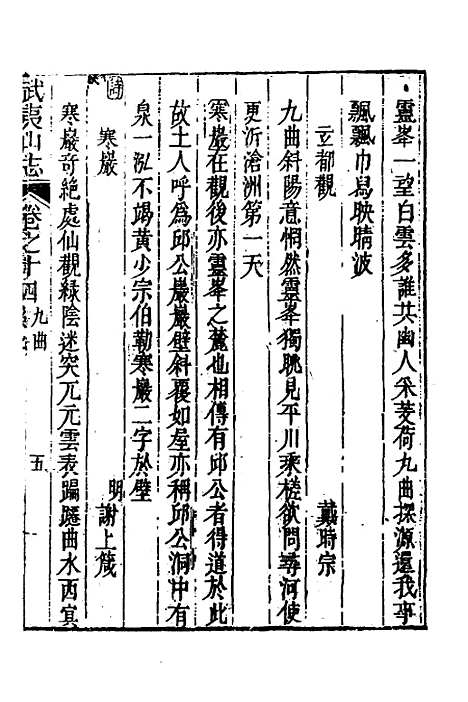 靈峯一望白雲多誰共幽人采芰荷九曲探源還我事
飄飄巾舄映晴波
玄都觀
戴時宗
九曲斜陽意惘然靈峯獨眺見平川乘槎欲問尋河使
更泝滄洲第一天
寒巖在觀後亦靈峯之麓也相傳有邱公者得道於此
故土人呼爲邱公巖巖壁斜覆如屋亦稱邱公洞中有
泉一泓不竭黃少宗伯勒寒巖二字於壁
詩
寒巖
明謝上箴
寒巖奇絕處仙觀綠陰迷突兀元雲表躋躔曲水西寘
武夷山志
卷之十四
九曲
五